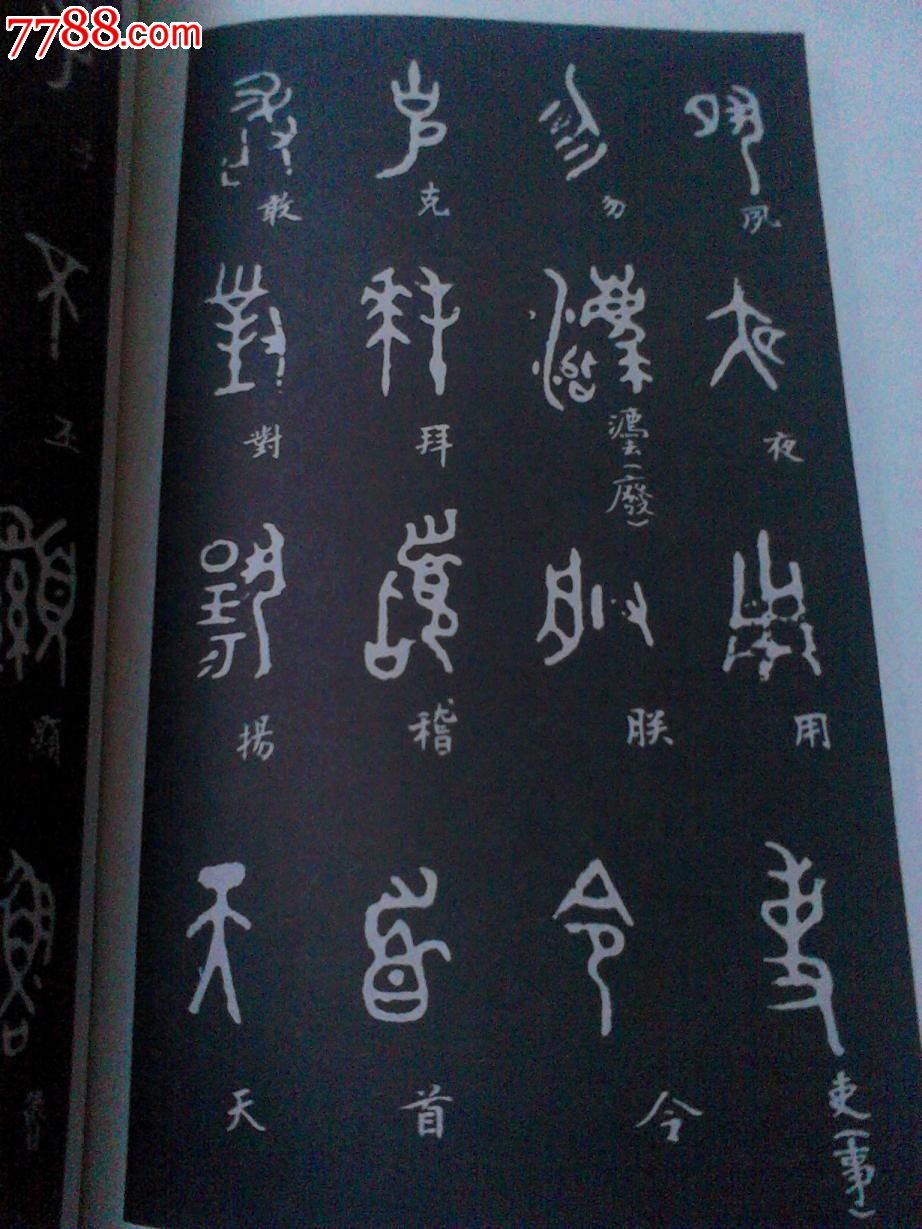 7788.com
夙
夜
用
吏(事)
勿
灋(廢)
朕
令
克
拜
稽
首
敢
對
揚
天
不
顯